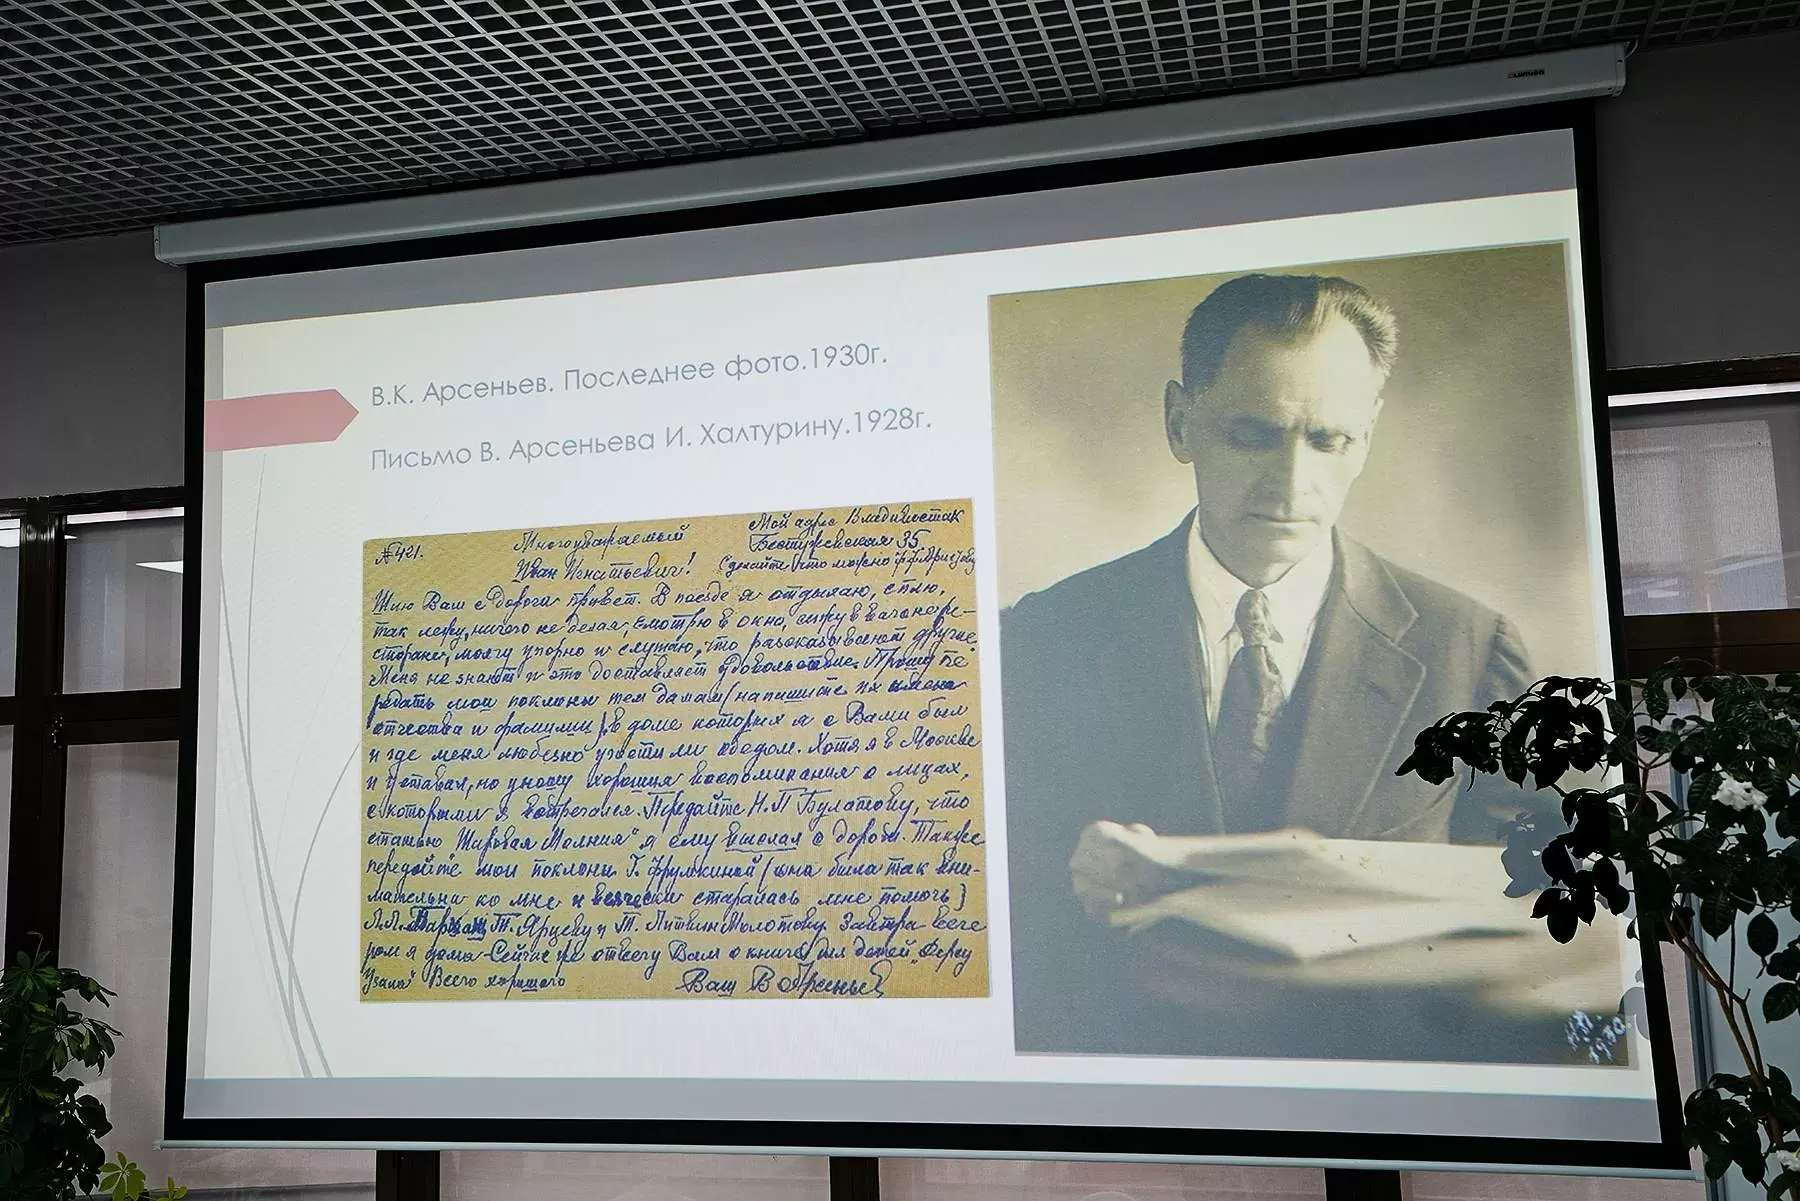 LUMIEN
В.К. Арсеньев. Последнее фото.1930г.
Письмо В. Арсеньева И. Халтурину.1928г.
№421.
Многоуважаемый
Иван Игнатьевич!
Мой адрес Владивосток
Бестужевская 35
Сделайте что можно
Шлю Вам с дороги привет. В поезде я отдыхаю, сплю,
так лежу, ничего не делая, смотрю в окно, сижу в вагоне-ре-
сторане, молчу упорно и слушаю, что рассказывают другие.
Меня не знают и это доставляет удовольствие. Прошу пе-
редать мои поклоны тем дамам (напишите их имена
отчества и фамилии), в доме которых я с Вами был
и где меня любезно угостили обедом. Хотя я в Москве
и уставал, но уношу хорошия воспоминания о лицах,
с которыми я встречался. Передайте Н.П. Булатову, что
статью "Шаровая Молния" я ему выслал с дороги. Также
передайте мои поклоны Г. Фрумкиной (она была так вни-
мательна ко мне и всячески старалась мне помочь)
Т. Ярцеву и Т. Литвин Молотову. Завтра вече
ром я дома. Сейчас же отвечу Вам о книге для детей „Дерсу
Узала" Всего хорошего
Ваш В Арсеньев
1930.